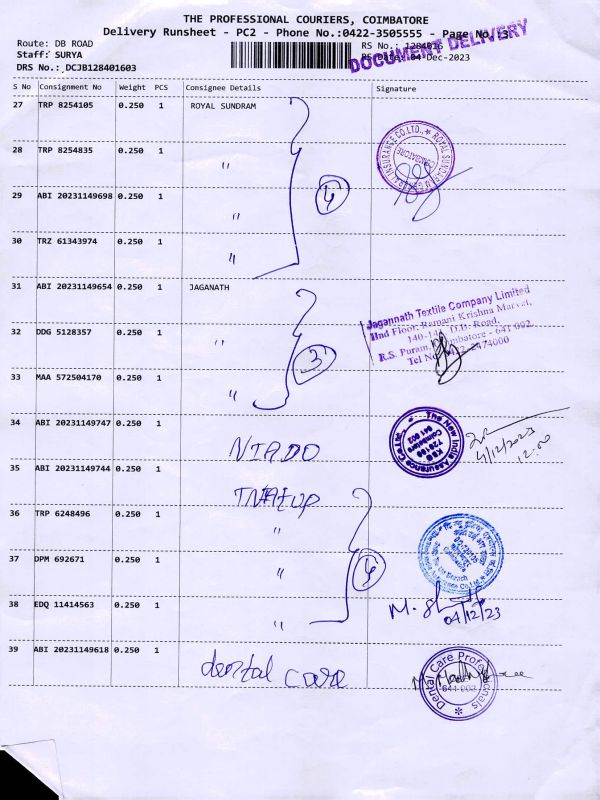 THE PROFESSIONAL COURIERS, COIMBATORE
Delivery Runsheet - PC2 - Phone No.:0422-3505555 - Page No.:3
DOCUMENT DELIVERY
Route: DB ROAD
Staff: SURYA
DRS No.: DCJB128401603
RS No.: 1284016
RS Date: 04-Dec-2023
S No Consignment No Weight PCS Consignee Details Signature
27 TRP 8254105 0.250 1 ROYAL SUNDRAM
28 TRP 8254835 0.250 1 "
29 ABI 20231149698 0.250 1 "
30 TRZ 61343974 0.250 1 "
4
31 ABI 20231149654 0.250 1 JAGANATH
32 DDG 5128357 0.250 1 "
33 MAA 572504170 0.250 1 "
3
Jagannath Textile Company Limited
IInd Floor, Ramani Krishna
D.B. Road,
R.S. Puram, Coimbatore - 641 002.
Tel No. 0422-2474000
34 ABI 20231149747 0.250 1 NIADO
The New India Assurance Co. Ltd.
Coimbatore
641 002
4/12/2023
12.00
35 ABI 20231149744 0.250 1
36 TRP 6248496 0.250 1 "
37 DPM 692671 0.250 1 "
38 EDQ 11414563 0.250 1 "
4
04/12/23
39 ABI 20231149618 0.250 1 dental care
Dental Care Professionals